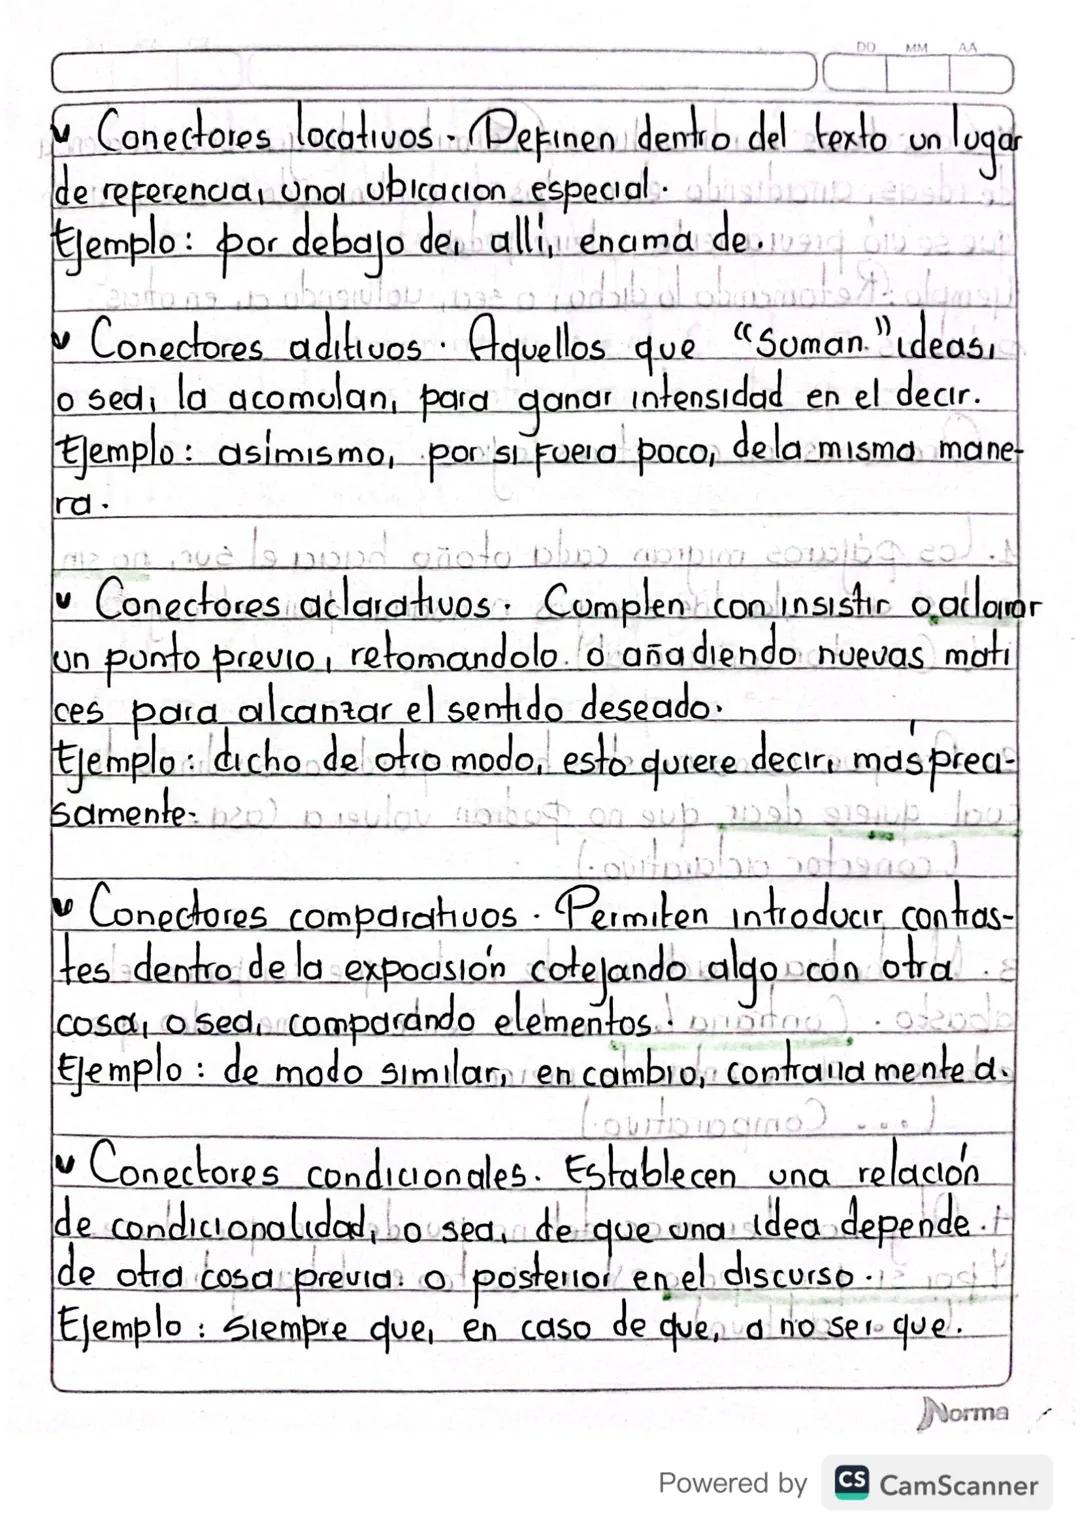 DD MM AA
✓ Conectores locativos - Definen dentro del texto un lugar
de referencia, una ubicacion especial.
Ejemplo: por debajo de, allí, encima de.
✓ Conectores aditivos. Aquellos que "Suman" ideas,
o sea, la acomulan, para ganar intensidad en el decir.
Ejemplo: asímismo, por si fuera poco, de la misma mane-
ra.
✓ Conectores aclarativos. Cumplen con insistir o aclarar
un punto previo, retomandolo o añadiendo nuevas mati
ces para alcanzar el sentido deseado.
Ejemplo: dicho de otro modo, esto quiere decir, más preci-
samente.
✓ Conectores comparativos. Permiten introducir contras-
tes dentro de la expocisión cotejando algo con otra
cosa, o sea, comparándo elementos.
Ejemplo: de modo similar, en cambio, contrariamente a.
✓ Conectores condicionales. Establecen una relación
de condicionalidad, o sea, de que una idea depende
de otra cosa previa o posterior en el discurso.
Ejemplo: Siempre que, en caso de que, a no ser que.
Norma
Powered by CS CamScanner